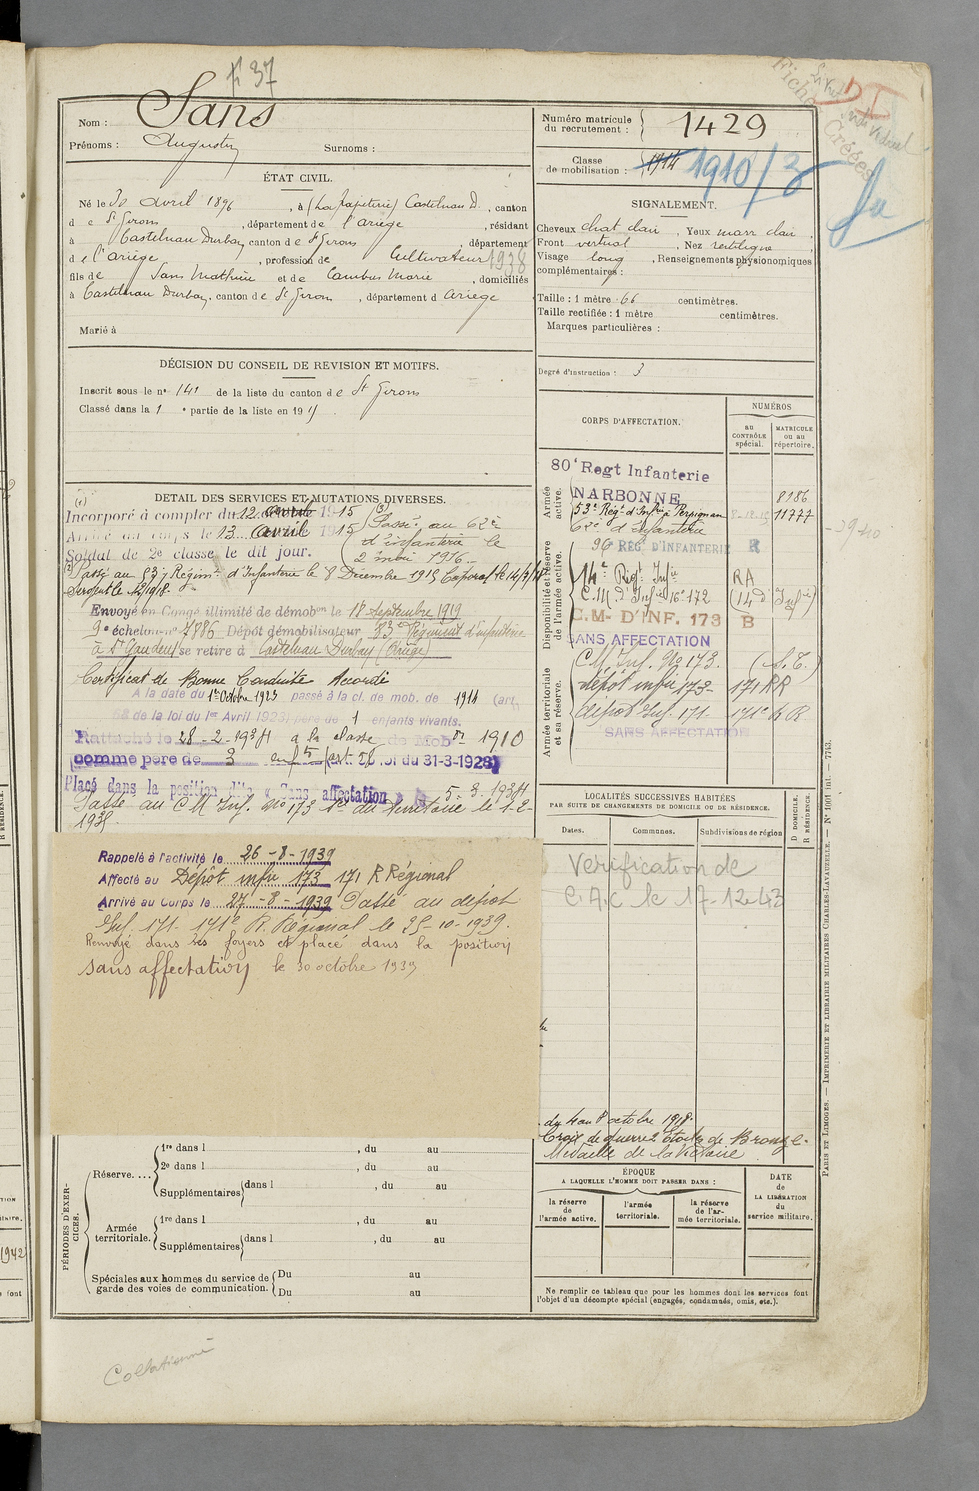 F 37
Nom : Sans
Prénoms : Augustin Surnoms :
ÉTAT CIVIL.
Né le 30 avril 1896, à (La papeterie) Castelnau D., canton
de St Girons, département de l'ariège, résidant
à Castelnau Durban canton de St Girons, département
de l'ariège, profession de Cultivateur 1938
fils de Sans Mathieu et de Cambus Marie, domiciliés
à Castelnau Durban, canton de St Girons, département d ariège
Marié à
DÉCISION DU CONSEIL DE REVISION ET MOTIFS.
Inscrit sous le no 141 de la liste du canton de St Girons
Classé dans la 1 e partie de la liste en 19
DÉTAIL DES SERVICES ET MUTATIONS DIVERSES.
(1) Incorporé à compter du 12 avril 1915
Arrivé au corps le 13 avril 1915
Soldat de 2e classe le dit jour.
(3) Passé au 62e
d'infanterie le
2 mai 1916
(2) Passé au 53e Régimt d'Infanterie le 8 Décembre 1915 Caporal le
Sergent le
Envoyé en Congé illimité de démobon le 18 Septembre 1919
9e échelon no 7886 Dépôt démobilisateur 83e Régiment d'infanterie
à St Gaudens se retire à Castelnau Durban (Ariège)
Certificat de Bonne Conduite Accordé
A la date du 1er Octobre 1923 passé à la cl. de mob. de 1914 (art.
58 de la loi du 1er Avril 1923) père de 1 enfants vivants.
Rattaché le 28-2-1934 à la classe de Mobon 1910
comme père de 3 enfts (art. 58 loi du 31-3-1928)
Placé dans la position dite « Sans affectation » le 5-3-1934
Passé au CM Inf. No 173 1e du Territoire le 1-2-
1935
Rappelé à l'activité le 26-8-1939
Affecté au Dépôt infie 173 171 R Régional
Arrivé au Corps le 27-8-1939 Passé au depot
Inf 171 171e R. Régional le 25-10-1939.
Renvoyé dans ses foyers et placé dans la position
sans affectation le 30 octobre 1939
PÉRIODES D'EXERCICES.
Réserve....
1re dans l , du au
2e dans l , du au
Supplémentaires dans l , du au
Armée territoriale.
1re dans l , du au
Supplémentaires dans l , du au
Spéciales aux hommes du service de
garde des voies de communication.
Du au
Du au
Collationné
Numéro matricule
du recrutement : 1429
Classe
de mobilisation : 1914 1910/3
Fiches Créées
SIGNALEMENT.
Cheveux chat clair, Yeux marr clair,
Front vertical, Nez rectiligne,
Visage long, Renseignements physionomiques
complémentaires :
Taille : 1 mètre 66 centimètres.
Taille rectifiée : 1 mètre centimètres.
Marques particulières :
Degré d'instruction : 3
CORPS D'AFFECTATION.
NUMÉROS
au
CONTRÔLE
spécial.
MATRICULE
ou au
répertoire.
Armée
active.
80e Regt Infanterie
NARBONNE 8186
53e Régt d'Infie à Perpignan 11777
62e d'infanterie
Disponibilité et réserve
de l'armée active.
96 REG. D'INFANTERIE R
14e Régt Infie RA
C.M d'Infie No 172 (14e Infie)
C.M- D'INF. 173 B
SANS AFFECTATION
Armée territoriale
et sa réserve.
CM. Inf. No 173. (S.T.)
dépôt infie 173 171 RR
dépôt Inf. 171 171e R R
SANS AFFECTATION
LOCALITÉS SUCCESSIVES HABITÉES
PAR SUITE DE CHANGEMENTS DE DOMICILE OU DE RÉSIDENCE.
Dates. Communes. Subdivisions de région
D DOMICILE.
R RÉSIDENCE.
Vérification de
C.A.C le 17-12-43
du 4 au 8 octobre 1918
Croix de guerre Étoile de Bronze
Médaille de la Victoire
ÉPOQUE
A LAQUELLE L'HOMME DOIT PASSER DANS :
la réserve
de
l'armée active.
l'armée
territoriale.
la réserve
de l'armée territoriale.
DATE
de
LA LIBÉRATION
du
service militaire.
Ne remplir ce tableau que pour les hommes dont les services font
l'objet d'un décompte spécial (engagés, condamnés, omis, etc.).
PARIS ET LIMOGES. — IMPRIMERIE ET LIBRAIRIE MILITAIRES CHARLES-LAVAUZELLE. — No 1001 int. — 7743.
R RÉSIDENCE.
1942